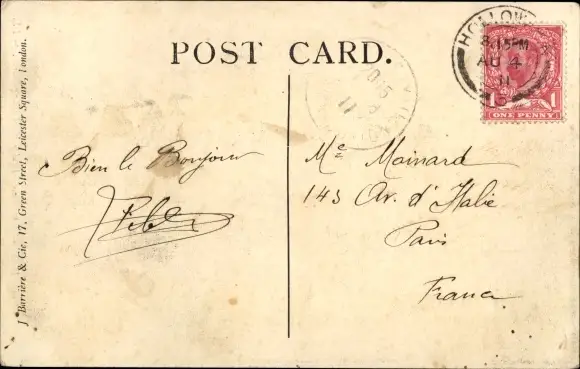 POST CARD.
HOLLOW
8.15PM
AU 4
11
1 1
ONE PENNY
Bien le Bonjour
Me Mainard
143 Av. d'Italie
Paris
France
J Barrière & Cie, 17, Green Street, Leicester Square, London.